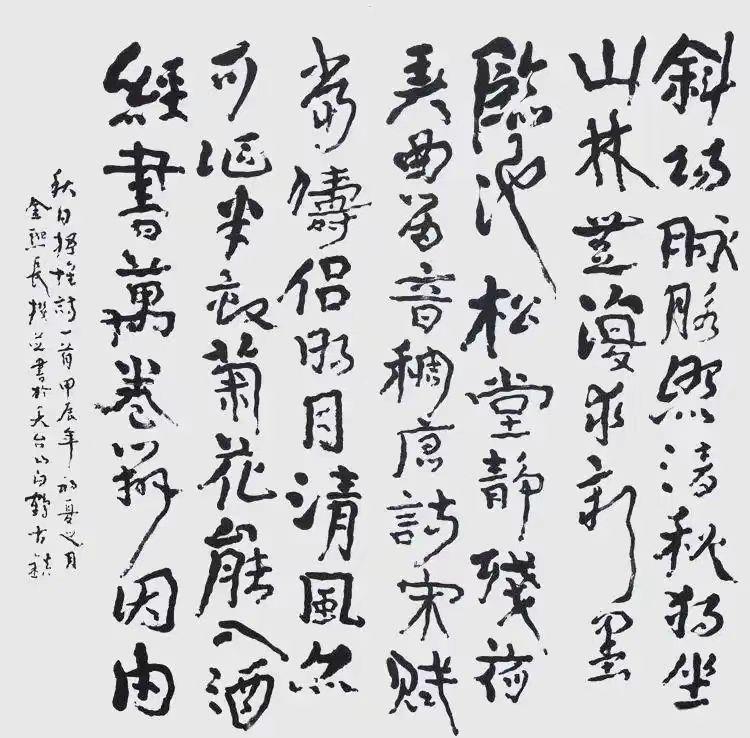 斜陽脉脉照清秋獨坐
山林漫求新墨
臨池松堂靜殘荷
曲留音稠唐詩宋賦
常儔侶明月清風亦
可謳半畝菊花能入酒
經書萬卷解因由
秋日抒懷詩一首甲辰年初夏之月
金熙長撰並書於天台山白鶴古鎮